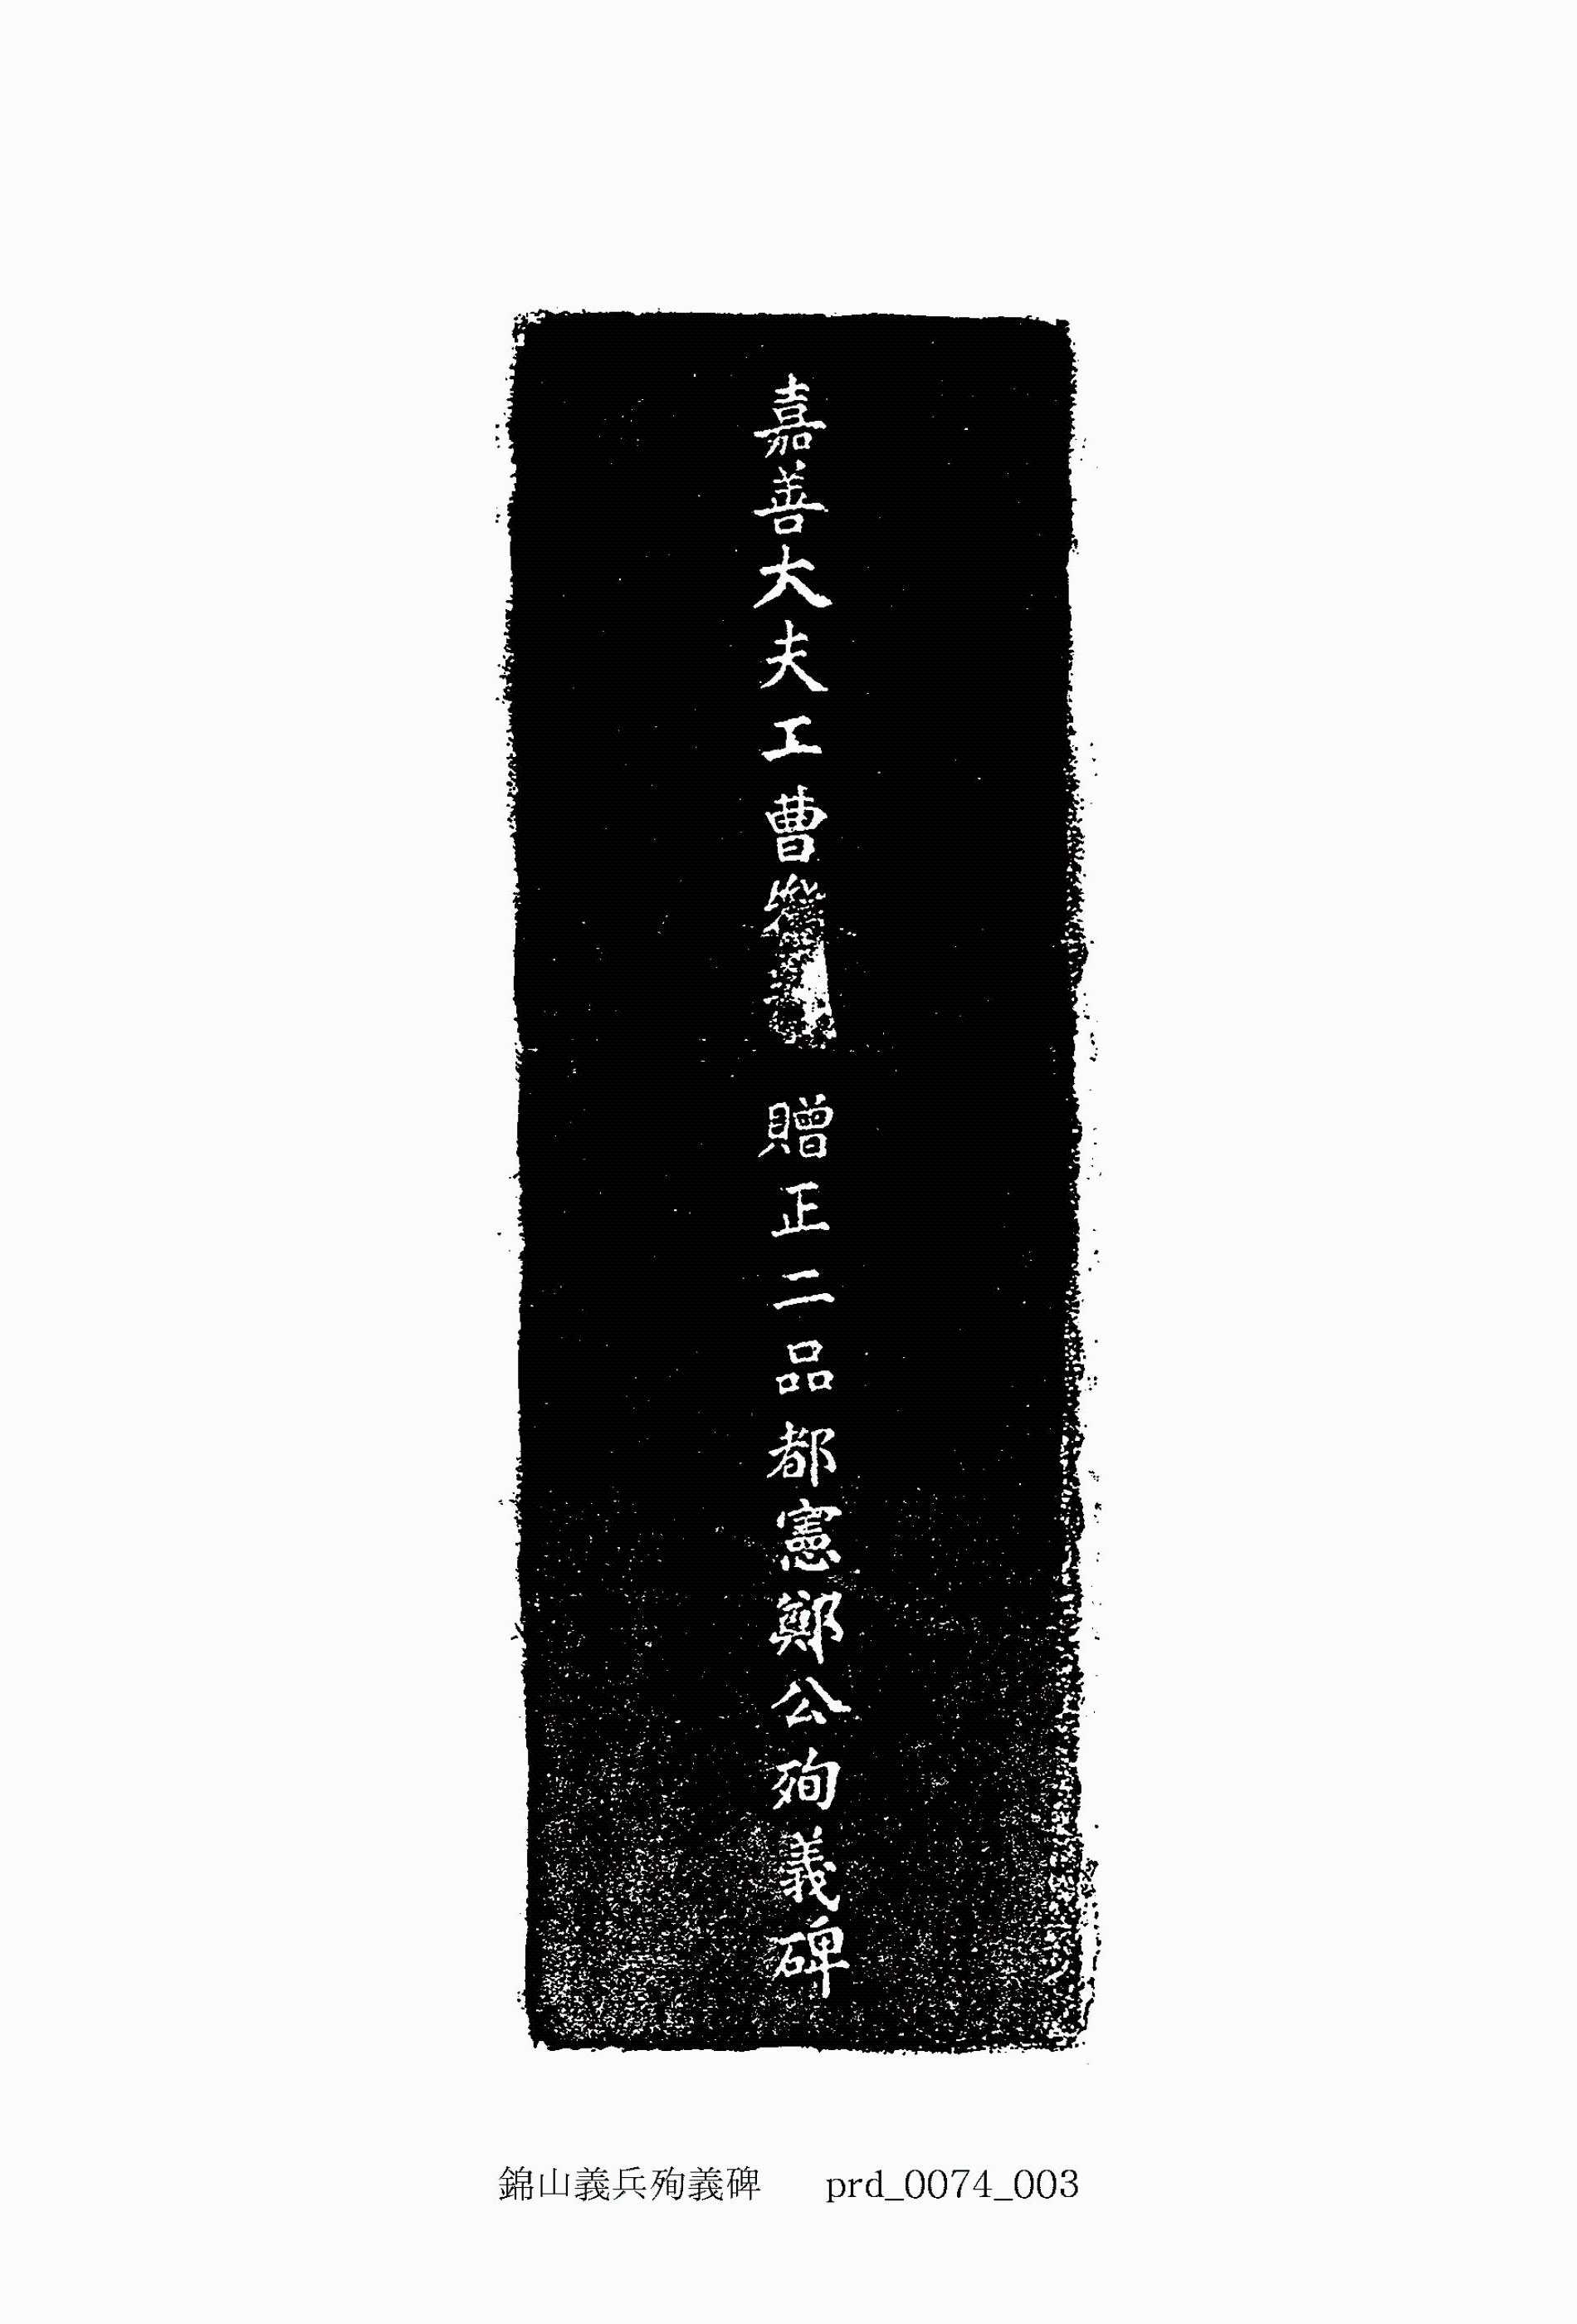 嘉善大夫工曹 贈正二品都憲鄭公殉義碑
錦山義兵殉義碑 prd_0074_003